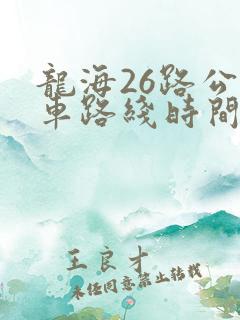 龍海26路公
車路綫時間
王良才
未经同意禁止转载